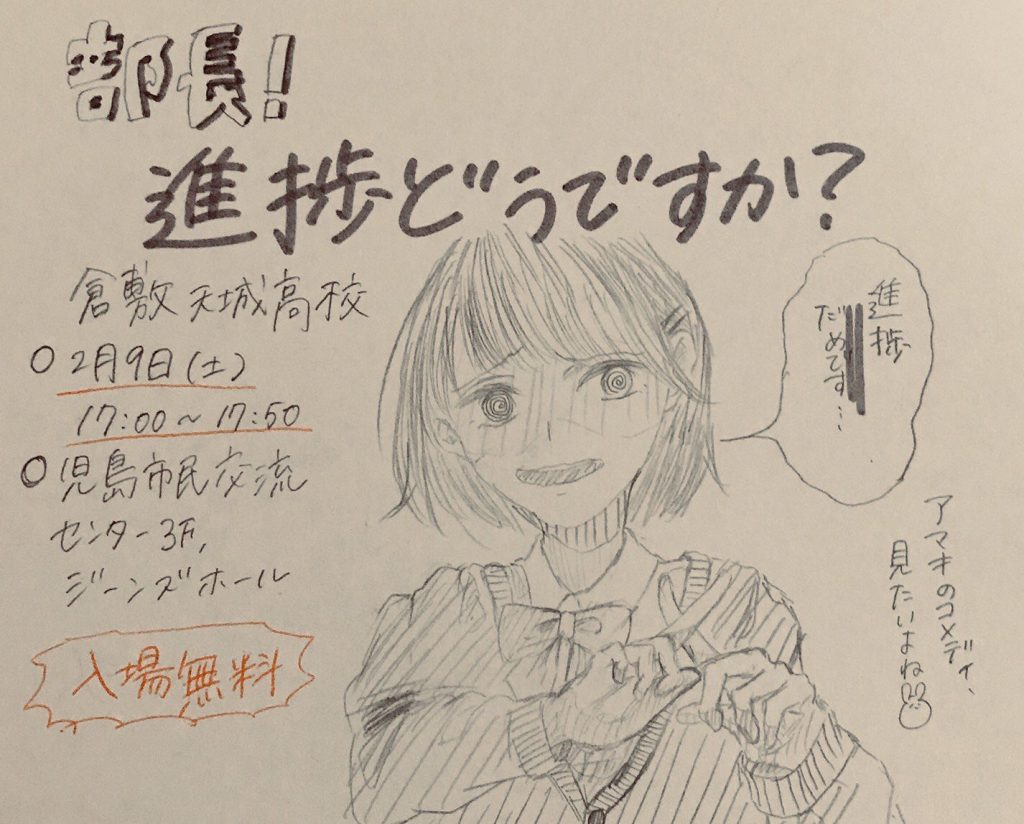 部長!
進捗どうですか?
倉敷天城高校
○2月9日(土)
17:00～17:50
○児島市民交流
センター3F,
ジーンズホール
入場無料
進捗
だめです…
アマキのコメディ、
見たいよね